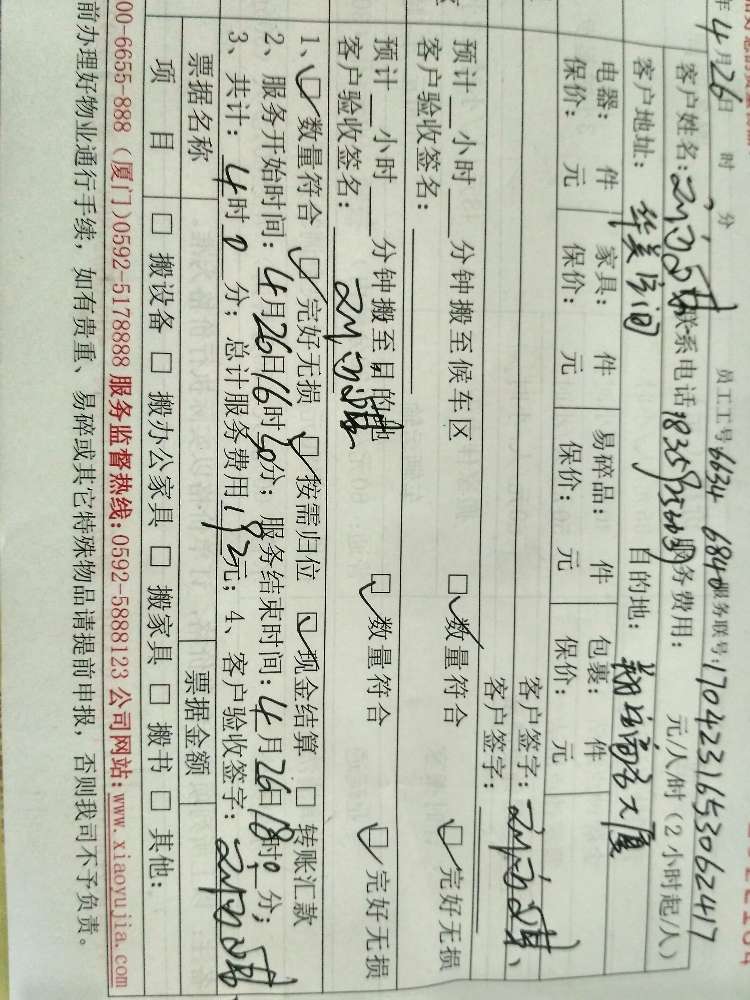 年4月26日 时 分 员工工号6634 6840服务联号:1704231653062417
客户姓名: 联系电话: 服务费用: 元/人/时(2小时起/人)
客户地址: 华美 目的地: 大厦
电器: 件 家具: 件 易碎品: 件 包裹: 件
保价: 元 保价: 元 保价: 元 保价: 元
客户签字:
客户签字:
预计 小时 分钟搬至候车区 □数量符合 □完好无损
客户验收签名:
预计 小时 分钟搬至目的地 □数量符合 □完好无损
客户验收签名:
1、□数量符合 □完好无损 □按需归位 □现金结算 □转账汇款
2、服务开始时间:4月26日16时 分;服务结束时间:4月26日18时0分;
3、共计:4时0分;总计服务费用192元;4、客户验收签字:
票据名称 票据金额
项 目 □搬设备 □搬办公家具 □搬家具 □搬书 □其他:
00-6655-888(厦门)0592-5178888 服务监督热线:0592-5888123 公司网站:www.xiaoyujia.com
前办理好物业通行手续,如有贵重、易碎或其它特殊物品请提前申报,否则我司不予负责。